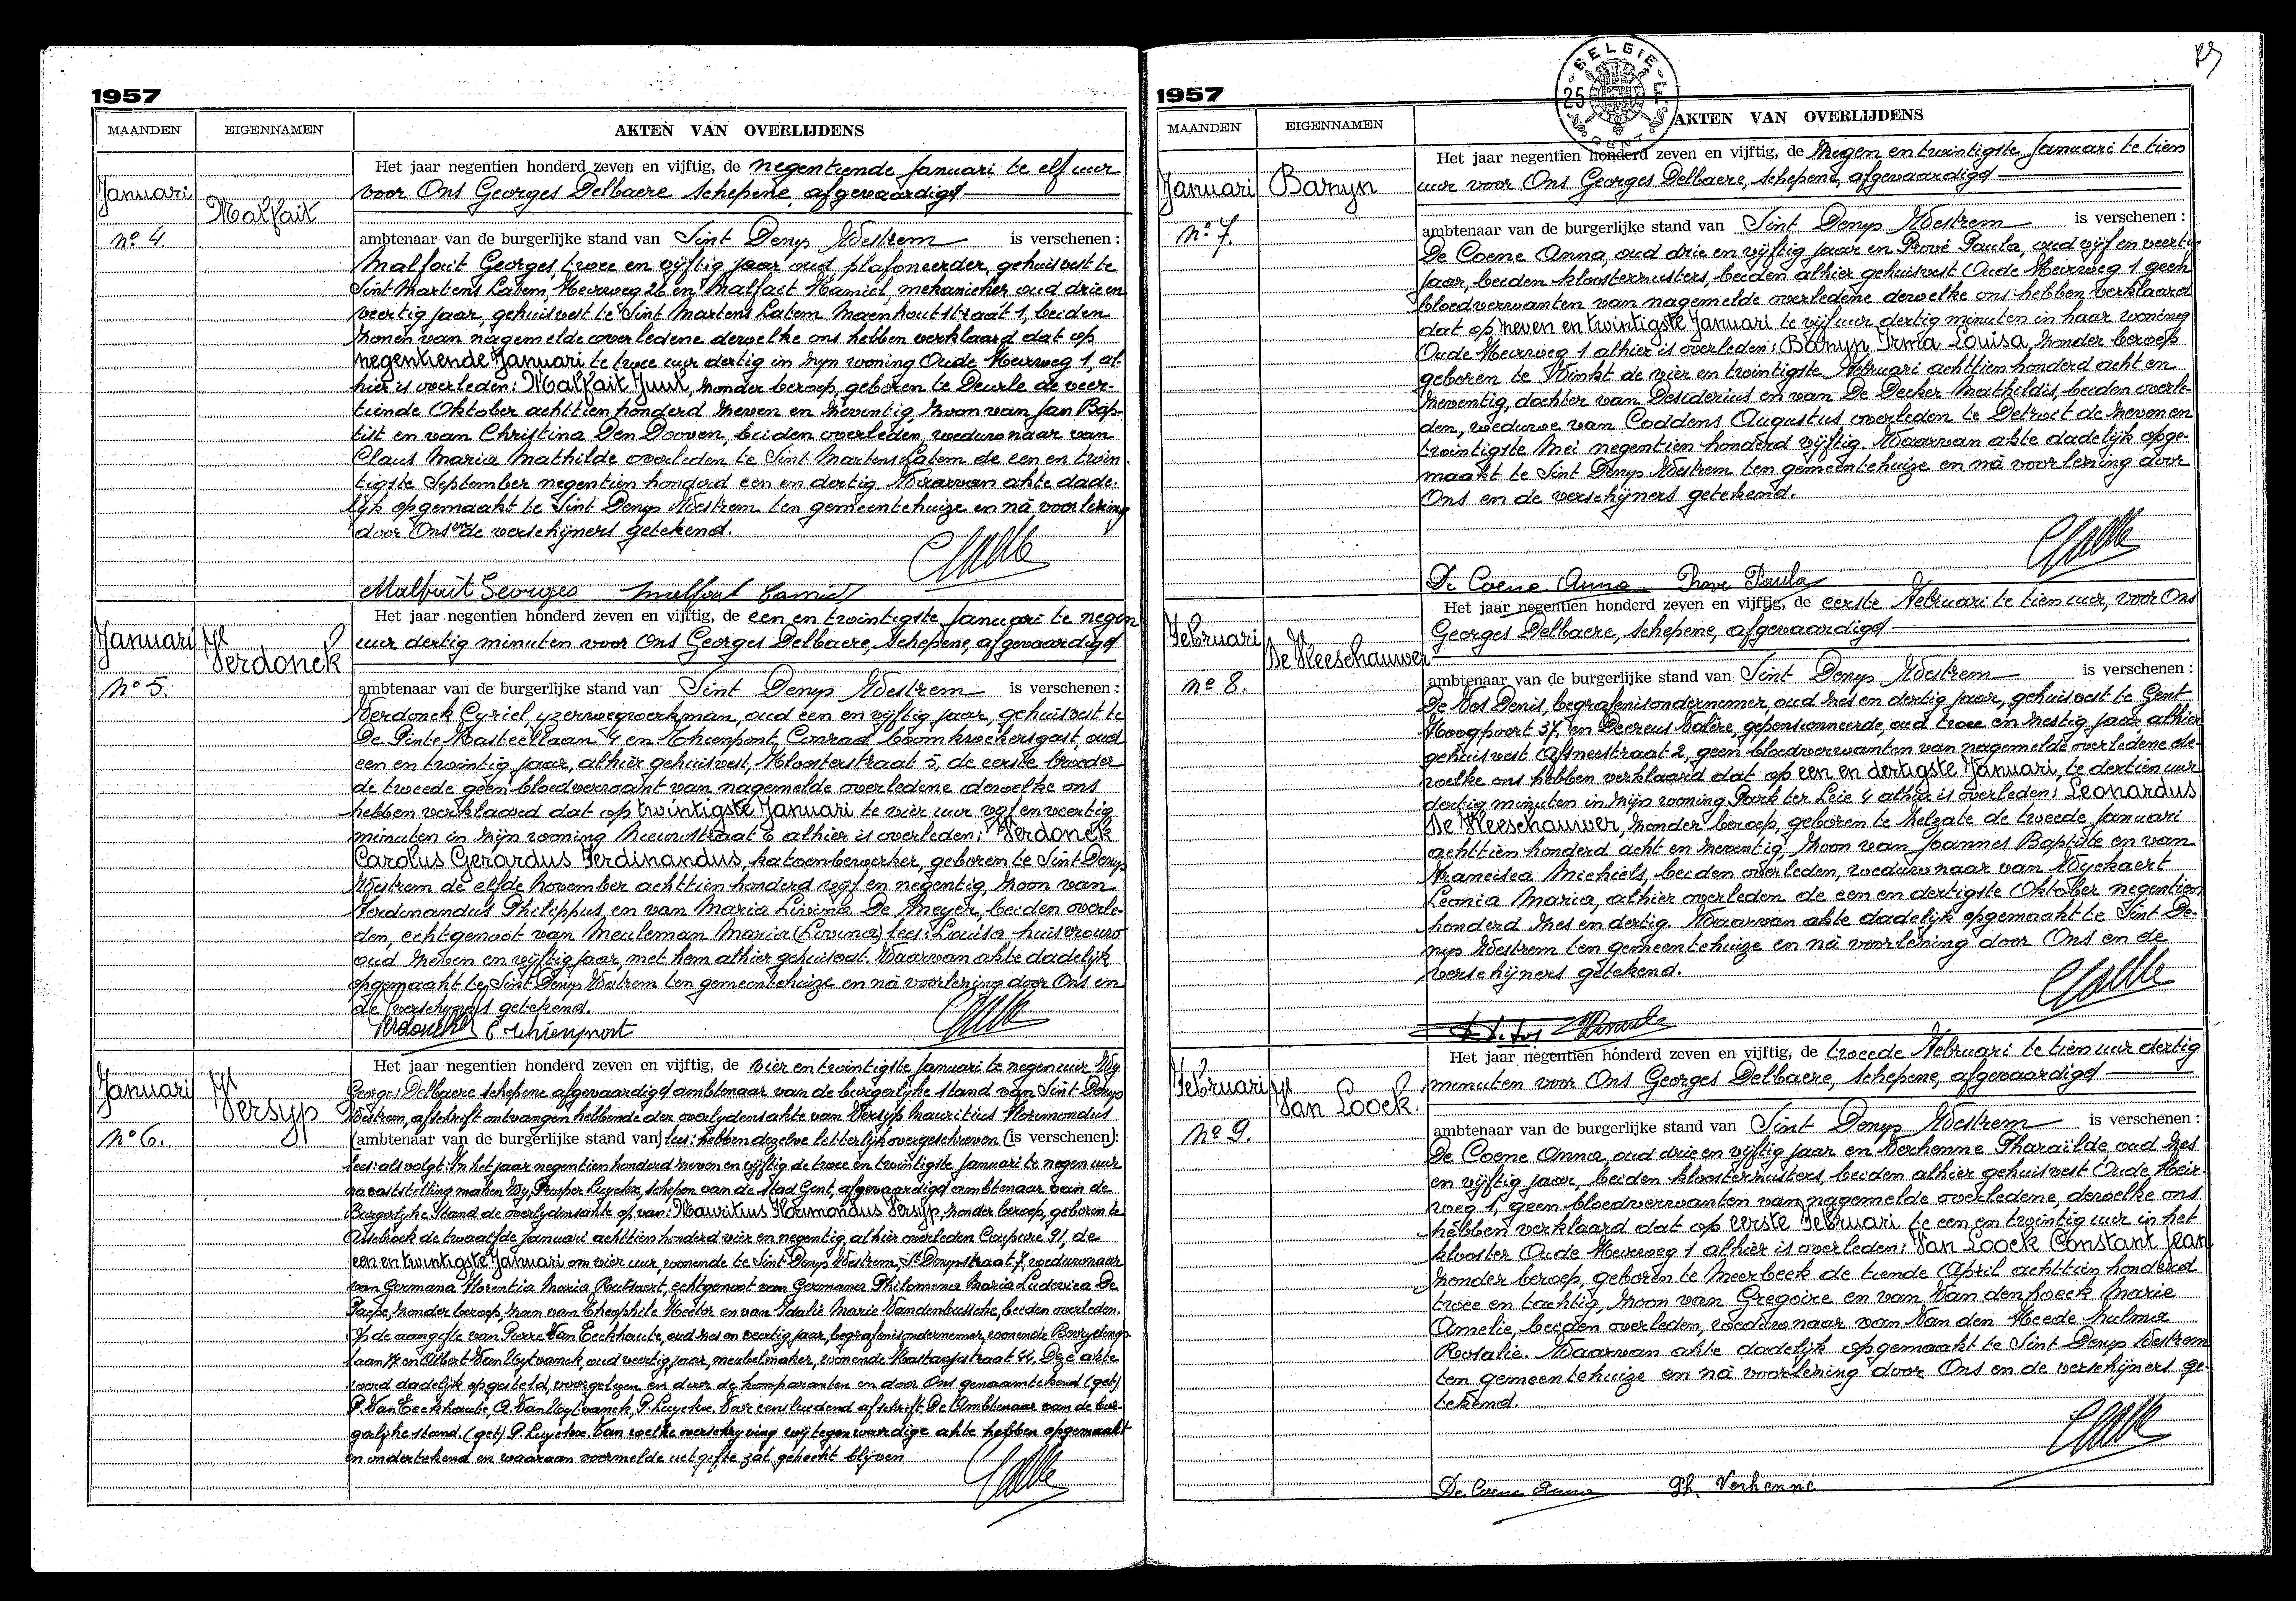 1957
MAANDEN
EIGENNAMEN
AKTEN VAN OVERLIJDENS
Januari
Malfait
no 4.
Het jaar negentien honderd zeven en vijftig, de negentiende Januari te elf uur
voor Ons Georges Delbaere schepene, afgevaardigd
ambtenaar van de burgerlijke stand van Sint Denys Westrem is verschenen :
Malfait Georges, twee en vijftig jaar oud plafoneerder, gehuisvest te
Sint Martens Latem, Heirweg 26 en Malfait Kamiel, mekanieker, oud drie en
veertig jaar, gehuisvest te Sint Martens Latem Maenhoutstraat 1, beiden
zonen van nagemelde overledene dewelke ons hebben verklaard dat op
negentiende Januari te twee uur dertig in zijn woning Oude Heirweg 1, al-
hier is overleden: Malfait Juul, zonder beroep, geboren te Deurle de veer-
tiende Oktober achttien honderd zeven en zeventig, zoon van Jan Bap-
tist en van Christina Den Dooven, beiden overleden, weduwnaar van
Claus Maria Mathilde overleden te Sint Martens Latem de een en twin
tigste September negentien honderd een en dertig. Waarvan akte dade-
lijk opgemaakt te Sint Denys Westrem ten gemeentehuize en nà voorlezing
door Ons en de verschijners getekend.
Malfait Georges Malfait Camiel
Januari
Verdonck
no 5.
Het jaar negentien honderd zeven en vijftig, de een en twintigste Januari te negen
uur dertig minuten voor Ons Georges Delbaere, Schepene, afgevaardigd
ambtenaar van de burgerlijke stand van Sint Denys Westrem is verschenen :
Verdonck Cyriel, yzerwegwerkman, oud een en vijftig jaar, gehuisvest te
De Pinte Kasteellaan 4 en Thienpont Conrad boomkwekersgast, oud
een en twintig jaar, alhier gehuisvest, Kloosterstraat 5, de eerste broeder
de tweede geen bloedverwant van nagemelde overledene dewelke ons
hebben verklaard dat op twintigste Januari te vier uur vyf en veertig
minuten in zijn woning Nieuwstraat 6 alhier is overleden: Verdonck
Carolus Gerardus Ferdinandus, katoenbewerker, geboren te Sint Denys
Westrem de elfde November achttien honderd vyf en negentig, zoon van
Ferdinandus Philippus, en van Maria Livina De Meyer, beiden overle-
den, echtgenoot van Meuleman Maria (Livina) lees: Louisa huisvrouw
oud zeven en vijftig jaar, met hem alhier gehuisvest. Waarvan akte dadelijk
opgemaakt te Sint Denys Westrem ten gemeentehuize en nà voorlezing door Ons en
de verschijners getekend.
Verdonck C Thienpont
Januari
Versyp
no 6.
Het jaar negentien honderd zeven en vijftig, de vier en twintigste Januari te negen uur Wy
Georges Delbaere schepene afgevaardigd ambtenaar van de burgerlyke stand van Sint Denys
Westrem, afschrift ontvangen hebbende der overlydensakte van Versyp Mauritius Florimondus
(ambtenaar van de burgerlijke stand van) lees: hebben dezelve letterlijk overgeschreven (is verschenen):
lees: als volgt: In het jaar negentien honderd zeven en vijftig de twee en twintigste Januari te negen uur
na vaststelling maken Wy, Prosper Luyckx, schepen van de stad Gent, afgevaardigd ambtenaar van de
Burgerlyke Stand de overlydensakte op van: Mauritius Florimondus Versyp, zonder beroep, geboren te
Assebroek de twaalfde Januari achttien honderd vier en negentig, alhier overleden Coupure 91, de
een en twintigste Januari om vier uur, wonende te Sint Denys Westrem, St Denysstraat 7, weduwnaar
van Germana Florentia Maria Rutsaert, echtgenoot van Germana Philomena Maria Ludovica De
Paepe, zonder beroep, zoon van Theophile Hector en van Idalie Marie Vandenbussche, beiden overleden.
Op de aangifte van Pierre Van Eeckhaute, oud zes en veertig jaar, begrafenisondernemer, wonende Bevrydings-
laan 17 en Albert Van Uytvanck, oud veertig jaar, meubelmaker, wonende Kastanjestraat 44. Deze akte
werd dadelijk opgesteld, voorgelezen en door de komparanten en door Ons genaamtekend (get)
P. Van Eeckhaute, A. Van Uytvanck, P. Luyckx. Voor eensluidend afschrift. De Ambtenaar van de bur-
gerlyke stand. (get) P. Luyckx. Van welke overschryving wij tegenwoordige akte hebben opgemaakt
en ondertekend en waaraan voormelde uitgifte zal gehecht blijven
1957
BELGIE
25
GENT
MAANDEN
EIGENNAMEN
AKTEN VAN OVERLIJDENS
Januari
Banyn
no 7.
Het jaar negentien honderd zeven en vijftig, de Negen en twintigste Januari te tien
uur voor Ons Georges Delbaere, schepene, afgevaardigd
ambtenaar van de burgerlijke stand van Sint Denys Westrem is verschenen :
De Coene Anna, oud drie en vijftig jaar en Prové Paula, oud vijf en veertig
jaar, beiden kloosterzusters, beiden alhier gehuisvest Oude Heirweg 1 geen
bloedverwanten van nagemelde overledene dewelke ons hebben verklaard
dat op zeven en twintigste Januari te vijf uur dertig minuten in haar woning
Oude Heirweg 1 alhier is overleden: Banyn Irma Louisa, zonder beroep
geboren te Vinkt de vier en twintigste Februari achttien honderd acht en
zeventig, dochter van Desiderius en van De Decker Mathildis, beiden overle-
den, weduwe van Coddens Augustus overleden te Detroit de zeven en
twintigste Mei negentien honderd vijftig. Waarvan akte dadelijk opge-
maakt te Sint Denys Westrem ten gemeentehuize en nà voorlezing door
Ons en de verschijners getekend.
De Coene Anna Prové Paula
Februari
De Vleeschauwer
no 8.
Het jaar negentien honderd zeven en vijftig, de eerste Februari te tien uur, voor Ons
Georges Delbaere, schepene, afgevaardigd
ambtenaar van de burgerlijke stand van Sint Denys Westrem is verschenen :
De Vos Denis, begrafenisondernemer, oud zes en dertig jaar, gehuisvest te Gent
Hoogpoort 37, en Decreus Valère, gepensionneerde, oud twee en zestig jaar, alhier
gehuisvest Afsneestraat 2, geen bloedverwanten van nagemelde overledene de-
welke ons hebben verklaard dat op een en dertigste Januari, te dertien uur
dertig minuten in zijn woning Park ter Leie 4 alhier is overleden: Leonardus
De Vleeschauwer, zonder beroep, geboren te Zelzate de tweede Januari
achttien honderd acht en zeventig, zoon van Joannes Baptiste en van
Francisca Michiels, beiden overleden, weduwnaar van Wyckaert
Leonia Maria, alhier overleden de een en dertigste Oktober negentien
honderd zes en dertig. Waarvan akte dadelijk opgemaakt te Sint De-
nys Westrem ten gemeentehuize en nà voorlezing door Ons en de
verschijners getekend.
Februari
Van Loock.
no 9.
Het jaar negentien honderd zeven en vijftig, de tweede Februari te tien uur dertig
minuten voor Ons Georges Delbaere, schepene, afgevaardigd
ambtenaar van de burgerlijke stand van Sint Denys Westrem is verschenen :
De Coene Anna, oud drie en vijftig jaar en Verhenne Pharaïlde oud zes
en vijftig jaar, beiden kloosterzusters, beiden alhier gehuisvest Oude Heir-
weg 1, geen bloedverwanten van nagemelde overledene, dewelke ons
hebben verklaard dat op eerste Februari te een en twintig uur in het
klooster Oude Heirweg 1 alhier is overleden: Van Loock Constant Jean
zonder beroep, geboren te Meerbeek de tiende April achttien honderd
twee en tachtig, zoon van Gregoire en van Van den hoeck Marie
Amelie, beiden overleden, weduwnaar van Van den Heede Zulma
Rosalie. Waarvan akte dadelijk opgemaakt te Sint Denys Westrem
ten gemeentehuize en nà voorlezing door Ons en de verschijners ge-
tekend.
De Coene Anna Ph. Verhenne